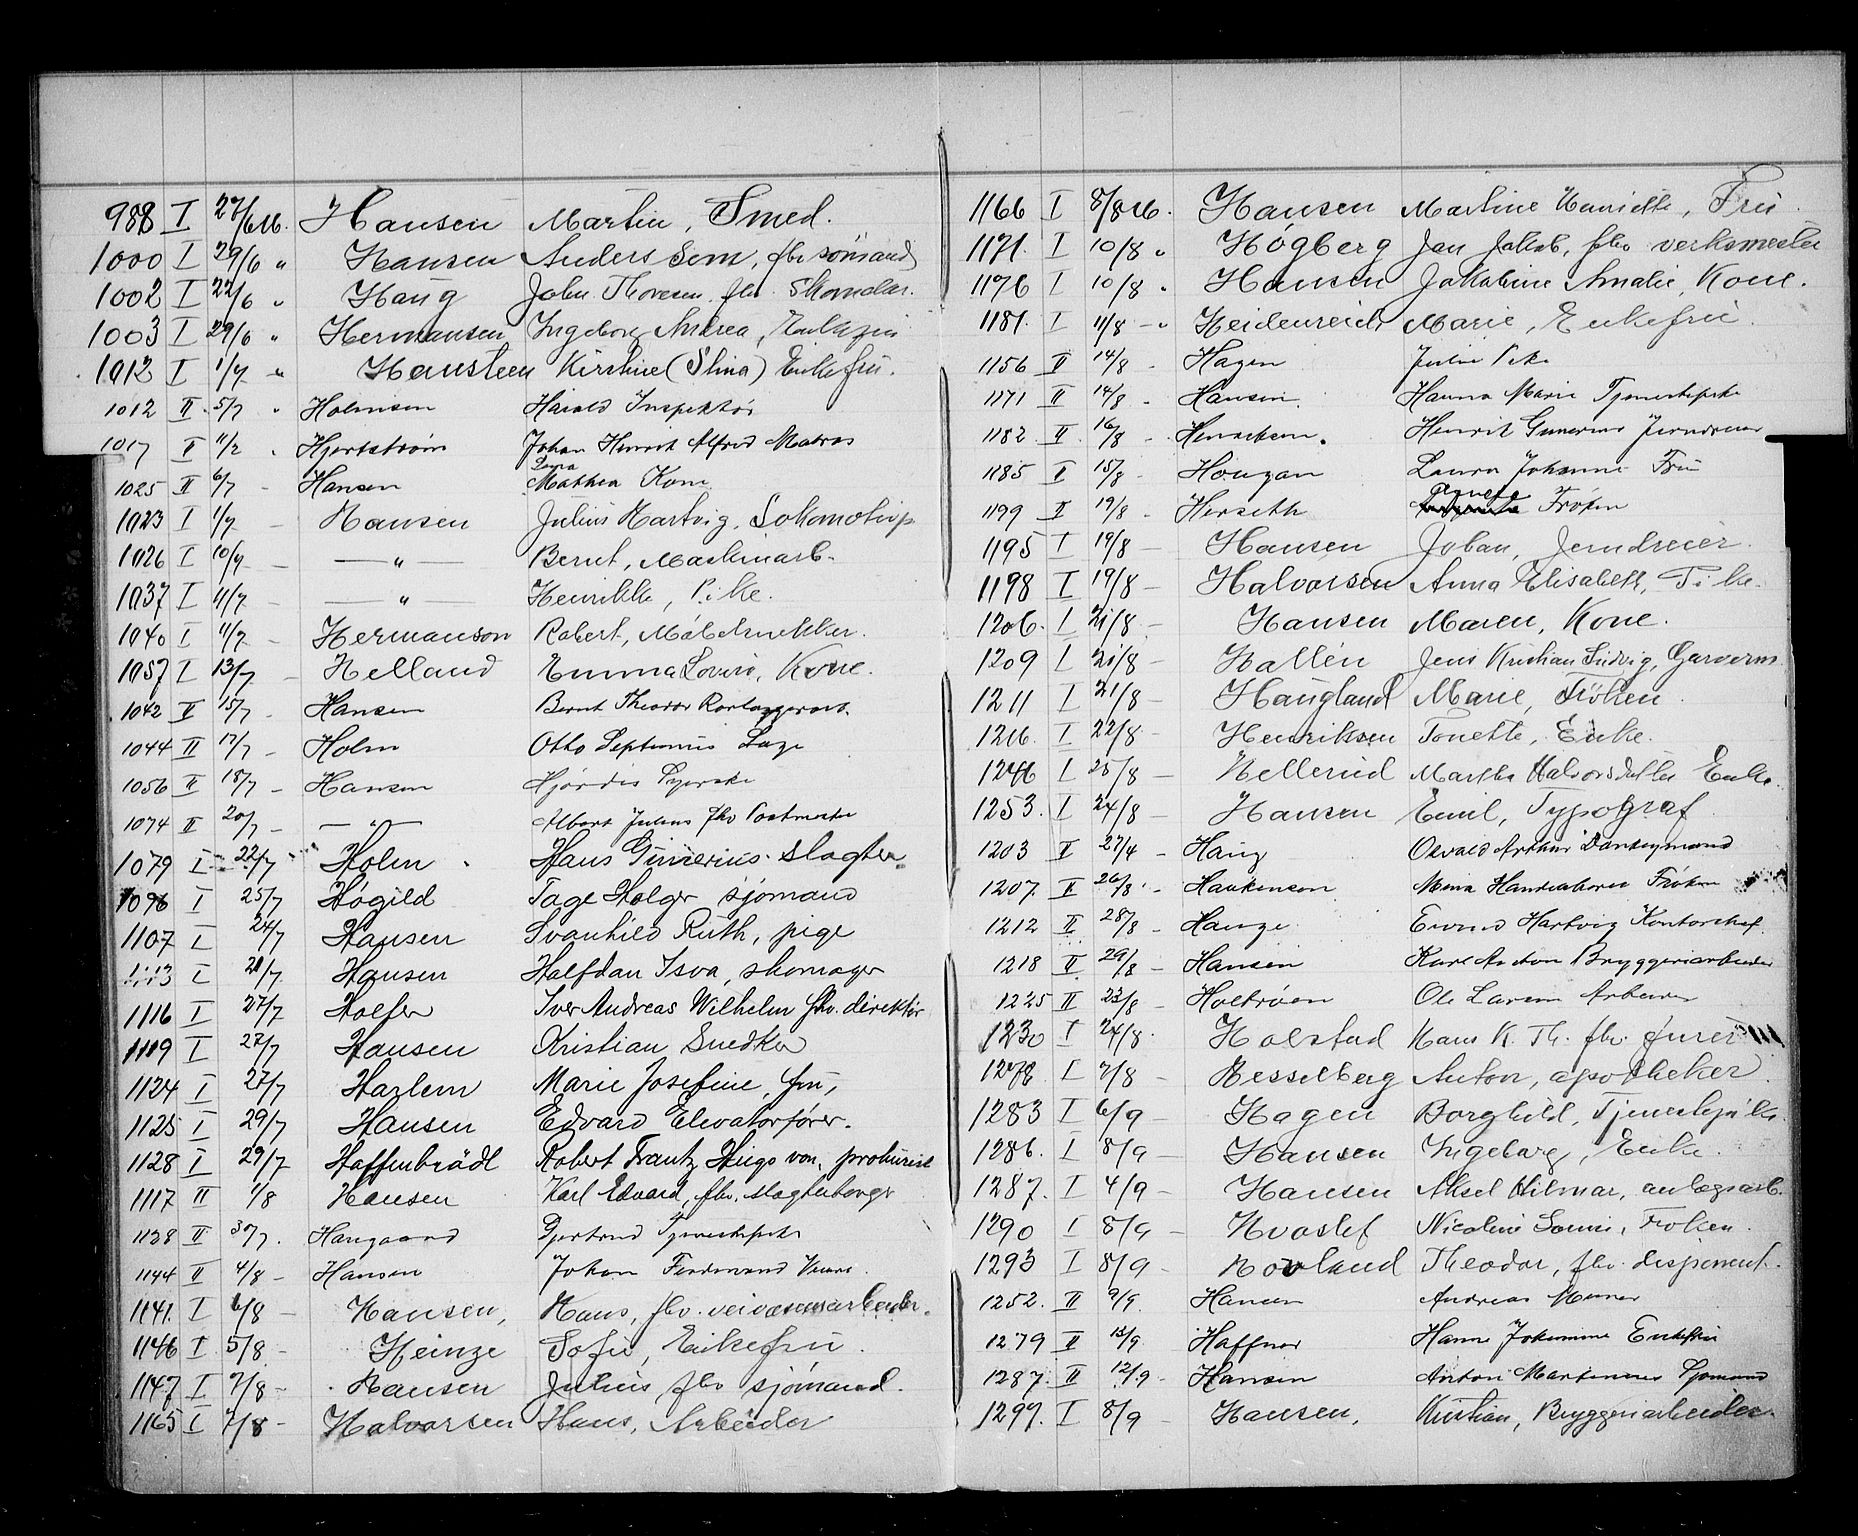 988 I 27/6 16. Hansen Martin, Smed.
1000 I 29/6 " Hansen Anders Sem, fhv sömand
1002 I 22/6 " Haug John Thoresen fhv. Skomaker.
1003 I 29/6 " Hermansen Ingeborg Andrea, Enkefru
1012 I 1/7 " Hansteen Kirstine (Stina) Enkefru.
1012 II 5/7 " Holmsen Harald Inspektör
1017 II 11/2 Hjertström Johan Henrik Alfred Matros
1025 II 6/7 Hansen Mathea Kone
1023 I 1/7 - Hansen Julius Hartvig, Lokomotivp
1026 I 10/7 - — " — Bernt, Maskinarb.
1037 I 11/7 - — " — Henrikke, Pike.
1040 I 11/7 - Hermanson Robert, Möbelsnekker.
1057 I 13/7 - Helland Emma Lovise, Kone.
1042 II 15/7 - Hansen Bernt Theodor
1044 II 17/7 - Holm Otto Septimus
1056 II 18/7 - Hansen Hjördis Syerske
1074 II 20/7 - — " — Albert Julius fhv Postmester
1079 I 22/7 Holm Hans Gunerius slagter
1096 I 25/7 Høgild Tage Holger sjömand
1107 I 24/7 Hansen Svanhild Ruth, pige
1113 I 21/7 Hansen Halfdan Isva, skomager
1116 I 27/7 Holfer Iver Andreas Wilhelm fhv. direktør
1119 I 27/7 Hansen Kristian Snedker
1124 I 27/7 Harlem Marie Josefine, fru,
1125 I 29/7 Hansen Edvard Elevatorfører.
1128 I 29/7 Haffenbrädl Robert Frantz Hugo von, prokurist
1117 II 1/8 Hansen Karl Edvard, fhv. slagterborger
1128 II 30/7. Haugaard Gjertrud Tjenestepike
1144 II 4/8 - Hansen Johan Ferdinand
1141. I 6/8 - Hansen, Hans, fhv. veivæsensarbeider.
1146 I 5/8 - Heinze Sofie, Enkefru.
1147 I 7/8 - Hansen Julius, fhv sjömand.
1165 I 7/8 - Halvorsen Hans, Arbeider
1166 I 8/8 16. Hansen Martine Henriette, Fru.
1171. I 10/8 " Högberg Jan Jakob, fhv verksmester
1176 I 10/8 " Hansen Jakobine Amalie, Kone.
1181. I 11/8 - " Heidenreich Marie, Enkefru.
1156 II 14/8 - Hagen Julie Pike
1171 II 14/8 - Hansen. Hanna Marie Tjenestepike
1182 II 16/8 - Henriksen. Henrik Gunerius Jerndreier
1185 II 15/8 - Hougan Laura Johanne Fru
1199 II 19/8 - Herseth Agnete Frøken
1195 I 19/8 - Hansen Johan, Jerndreier.
1198 I 19/8 - Halvorsen Anna Elisabeth, Pike.
1206. I 21/8 - Hansen Maren, Kone.
1209 I 21/8 - Hallén Jens Kristian Ludvig, Garverm
1211 I 21/8 - Haugland Marie, Fröken.
1216. I 22/8 - Henriksen Tonette, Enke.
1246 I 25/8 - Hellerud Martha Halvorsdatter Enke.
1253. I 24/8 - Hansen Emil, Typograf
1203 II 27/4 - Haug Osvald Arthur
1207. II 26/8 - Haakenson Mina Frøken
1212 II 28/8 - Hauge Hartvig Kontorchef
1218 II 29/8 - Hansen Karl Anton Bryggeriarbeider
1225 II 23/8 - Holtröen Ole Larsen Arbeider
1230 I 24/8. Holstad Hans K. Th. fhv.
1278 I 7/8 - Hesselberg Anton, apotheker.
1283 I 6/9 - Hagen Borghild, Tjenestepike.
1286. I 8/9 - Hansen Ingeborg, Enke.
1287. I 4/9 - Hansen Aksel Hilmar, anlægsarb.
1290 I 8/9 - Hvoslef Nicoline Louise, Froken.
1293 I 8/9 - Hovland Theodor, fhv. disponent.
1252. II 9/9. Hansen Andreas Murer
1279 II 15/9 Haffner Hanne Enkefru
1287. II 12/9 - Hansen Anton Martinius Sjömand
1297. I 8/9 - Hansen, Kristian, Bryggeriarbeider.